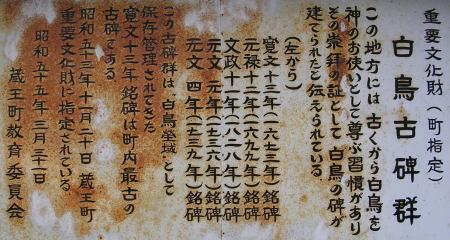 重要文化財（町指定）
白鳥古碑群
この地方には 古くから白鳥を
神のお使いとして尊ぶ習慣があり
その崇拝の証として 白鳥の碑が
建てられたと伝えられている。
（左から）
寛文十三年（一六七三年）銘碑
元禄十二年（一六九九年）銘碑
文政十一年（一八二八年）銘碑
元文 元年（一七三六年）銘碑
元文 四年（一七三九年）銘碑
この古碑群は 白鳥塋域として
保存管理されてきた
寛文十三年 銘碑は町内最古の
古碑である。
昭和五十三年十一月二十日 蔵王町
重要文化財に指定されている。
昭和五十五年 三月三十一日
蔵王町教育委員会